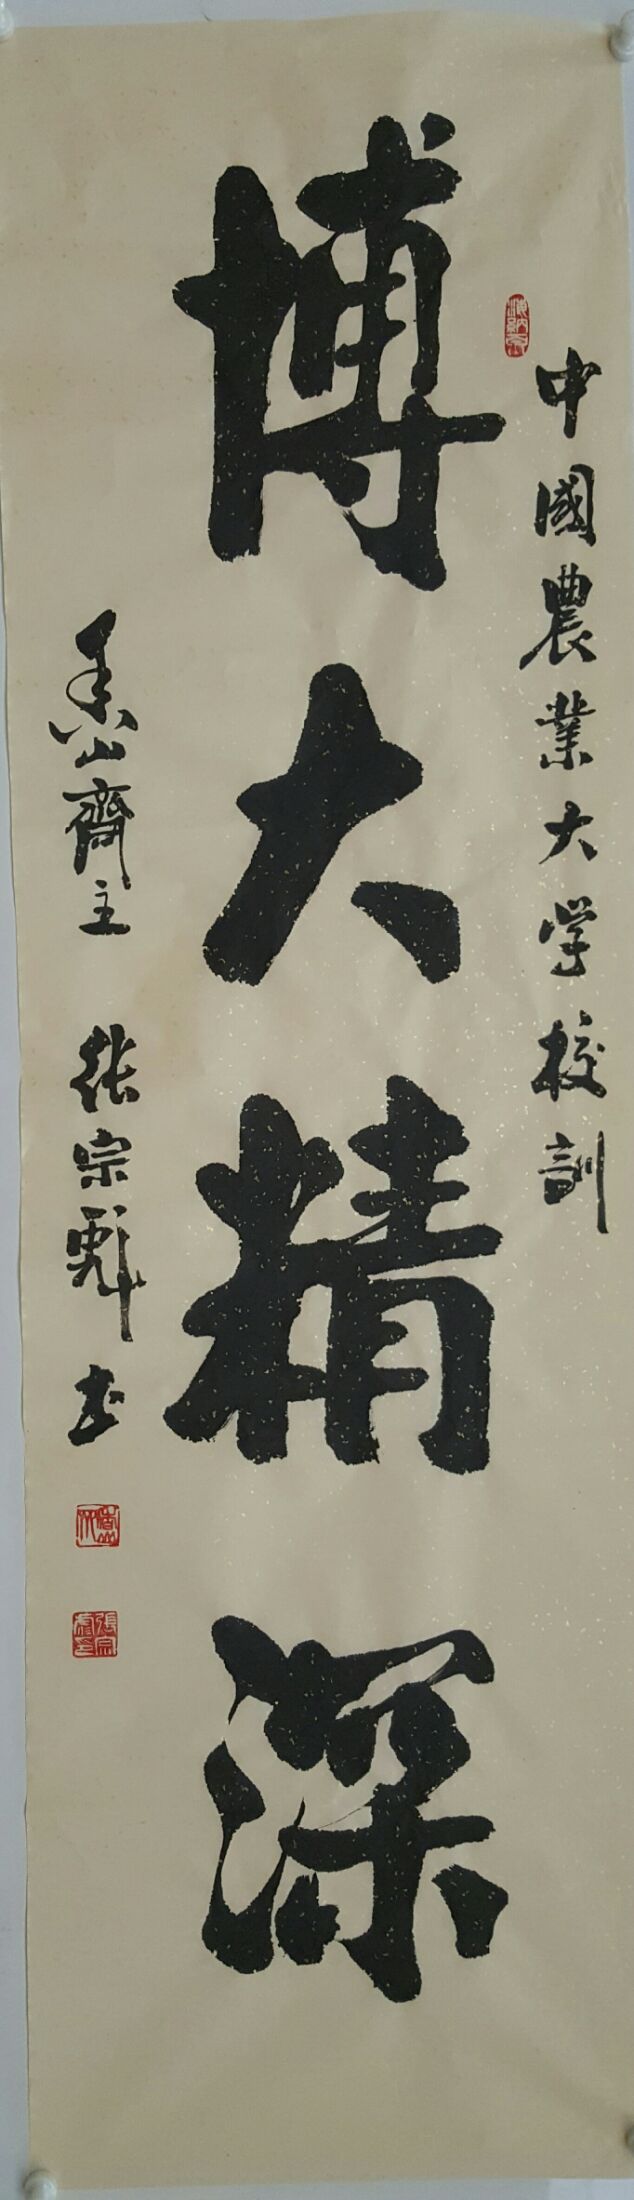 中國農業大学校訓
博大精深
香山齋主 张宗彪书